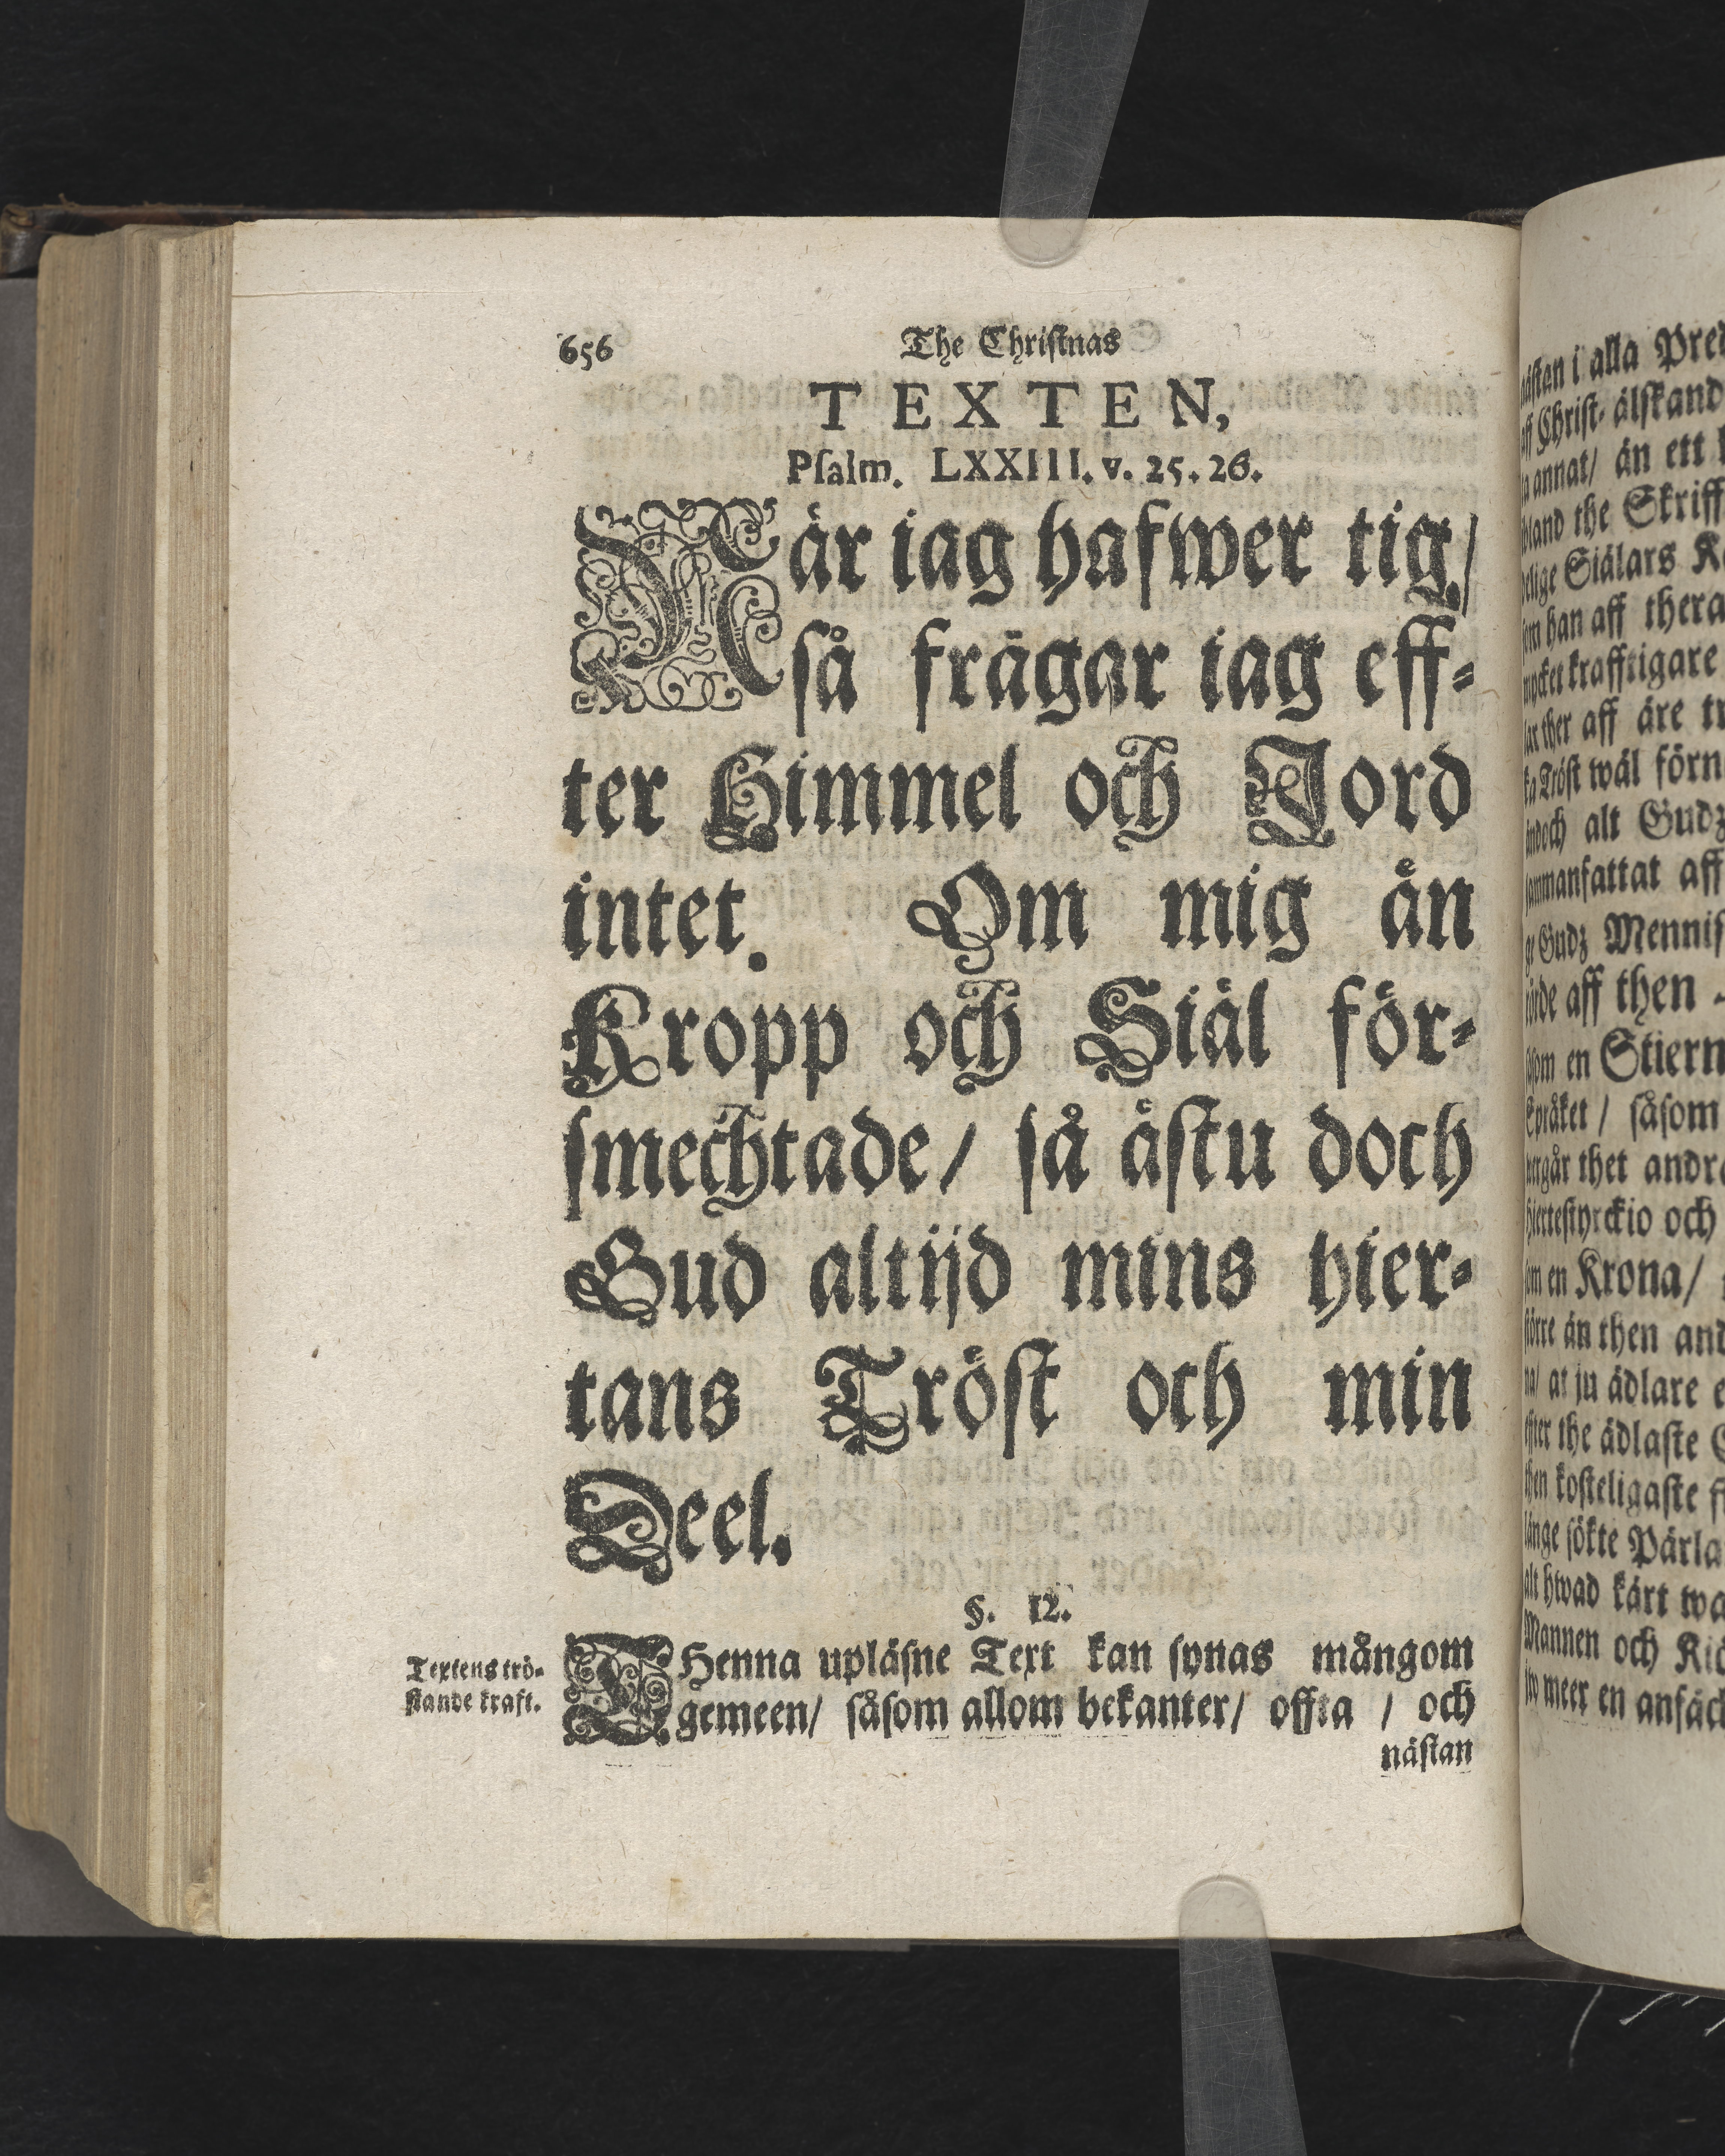 656
The Christnas
TEXTEN,
Psalm. LXXIII. v. 25. 26.
När iag hafwer tig/
så frägar iag eff-
ter Himmel och Jord
intet. Om mig än
Kropp och Siäl för-
smechtade/ så ästu doch
Gud altijd mins hier-
tans Tröst och min
Deel.
§. 12.
Textens trö-
stande kraft.
THenna upläsne Text kan synas mångom
gemeen/ såsom allom bekanter/ offta / och
nästan
nästan i alla
aff Christ- älskand
annat/ än ett
bland the Skriff
Siälars
han aff thera
krafftigare
ther aff äre
Tröst wäl förn
ändoch alt Gudz
sammanfattat aff
Gudz Mennis
aff then
såsom en Stiern
Språket / såsom
thet andra
hiertestyrckio och
som en Krona/
större än then and
na/ at ju ädlare
effter the ädlaste
then kosteligaste
länge sökte Pärla
alt hwad kärt wa
Mannen och
meer en ansäch